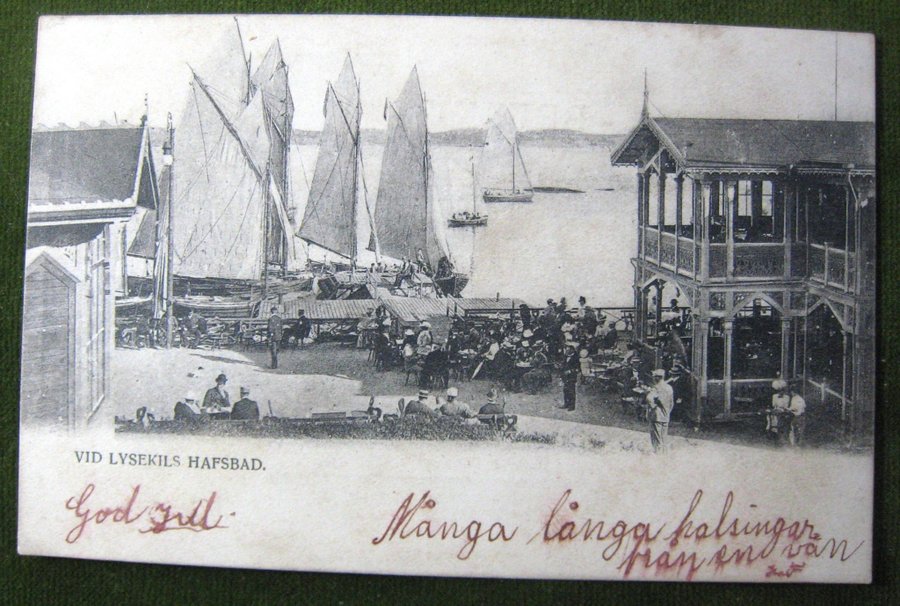 VID LYSEKILS HAFSBAD.
God Jul.
Många långa halsingar
från en vän